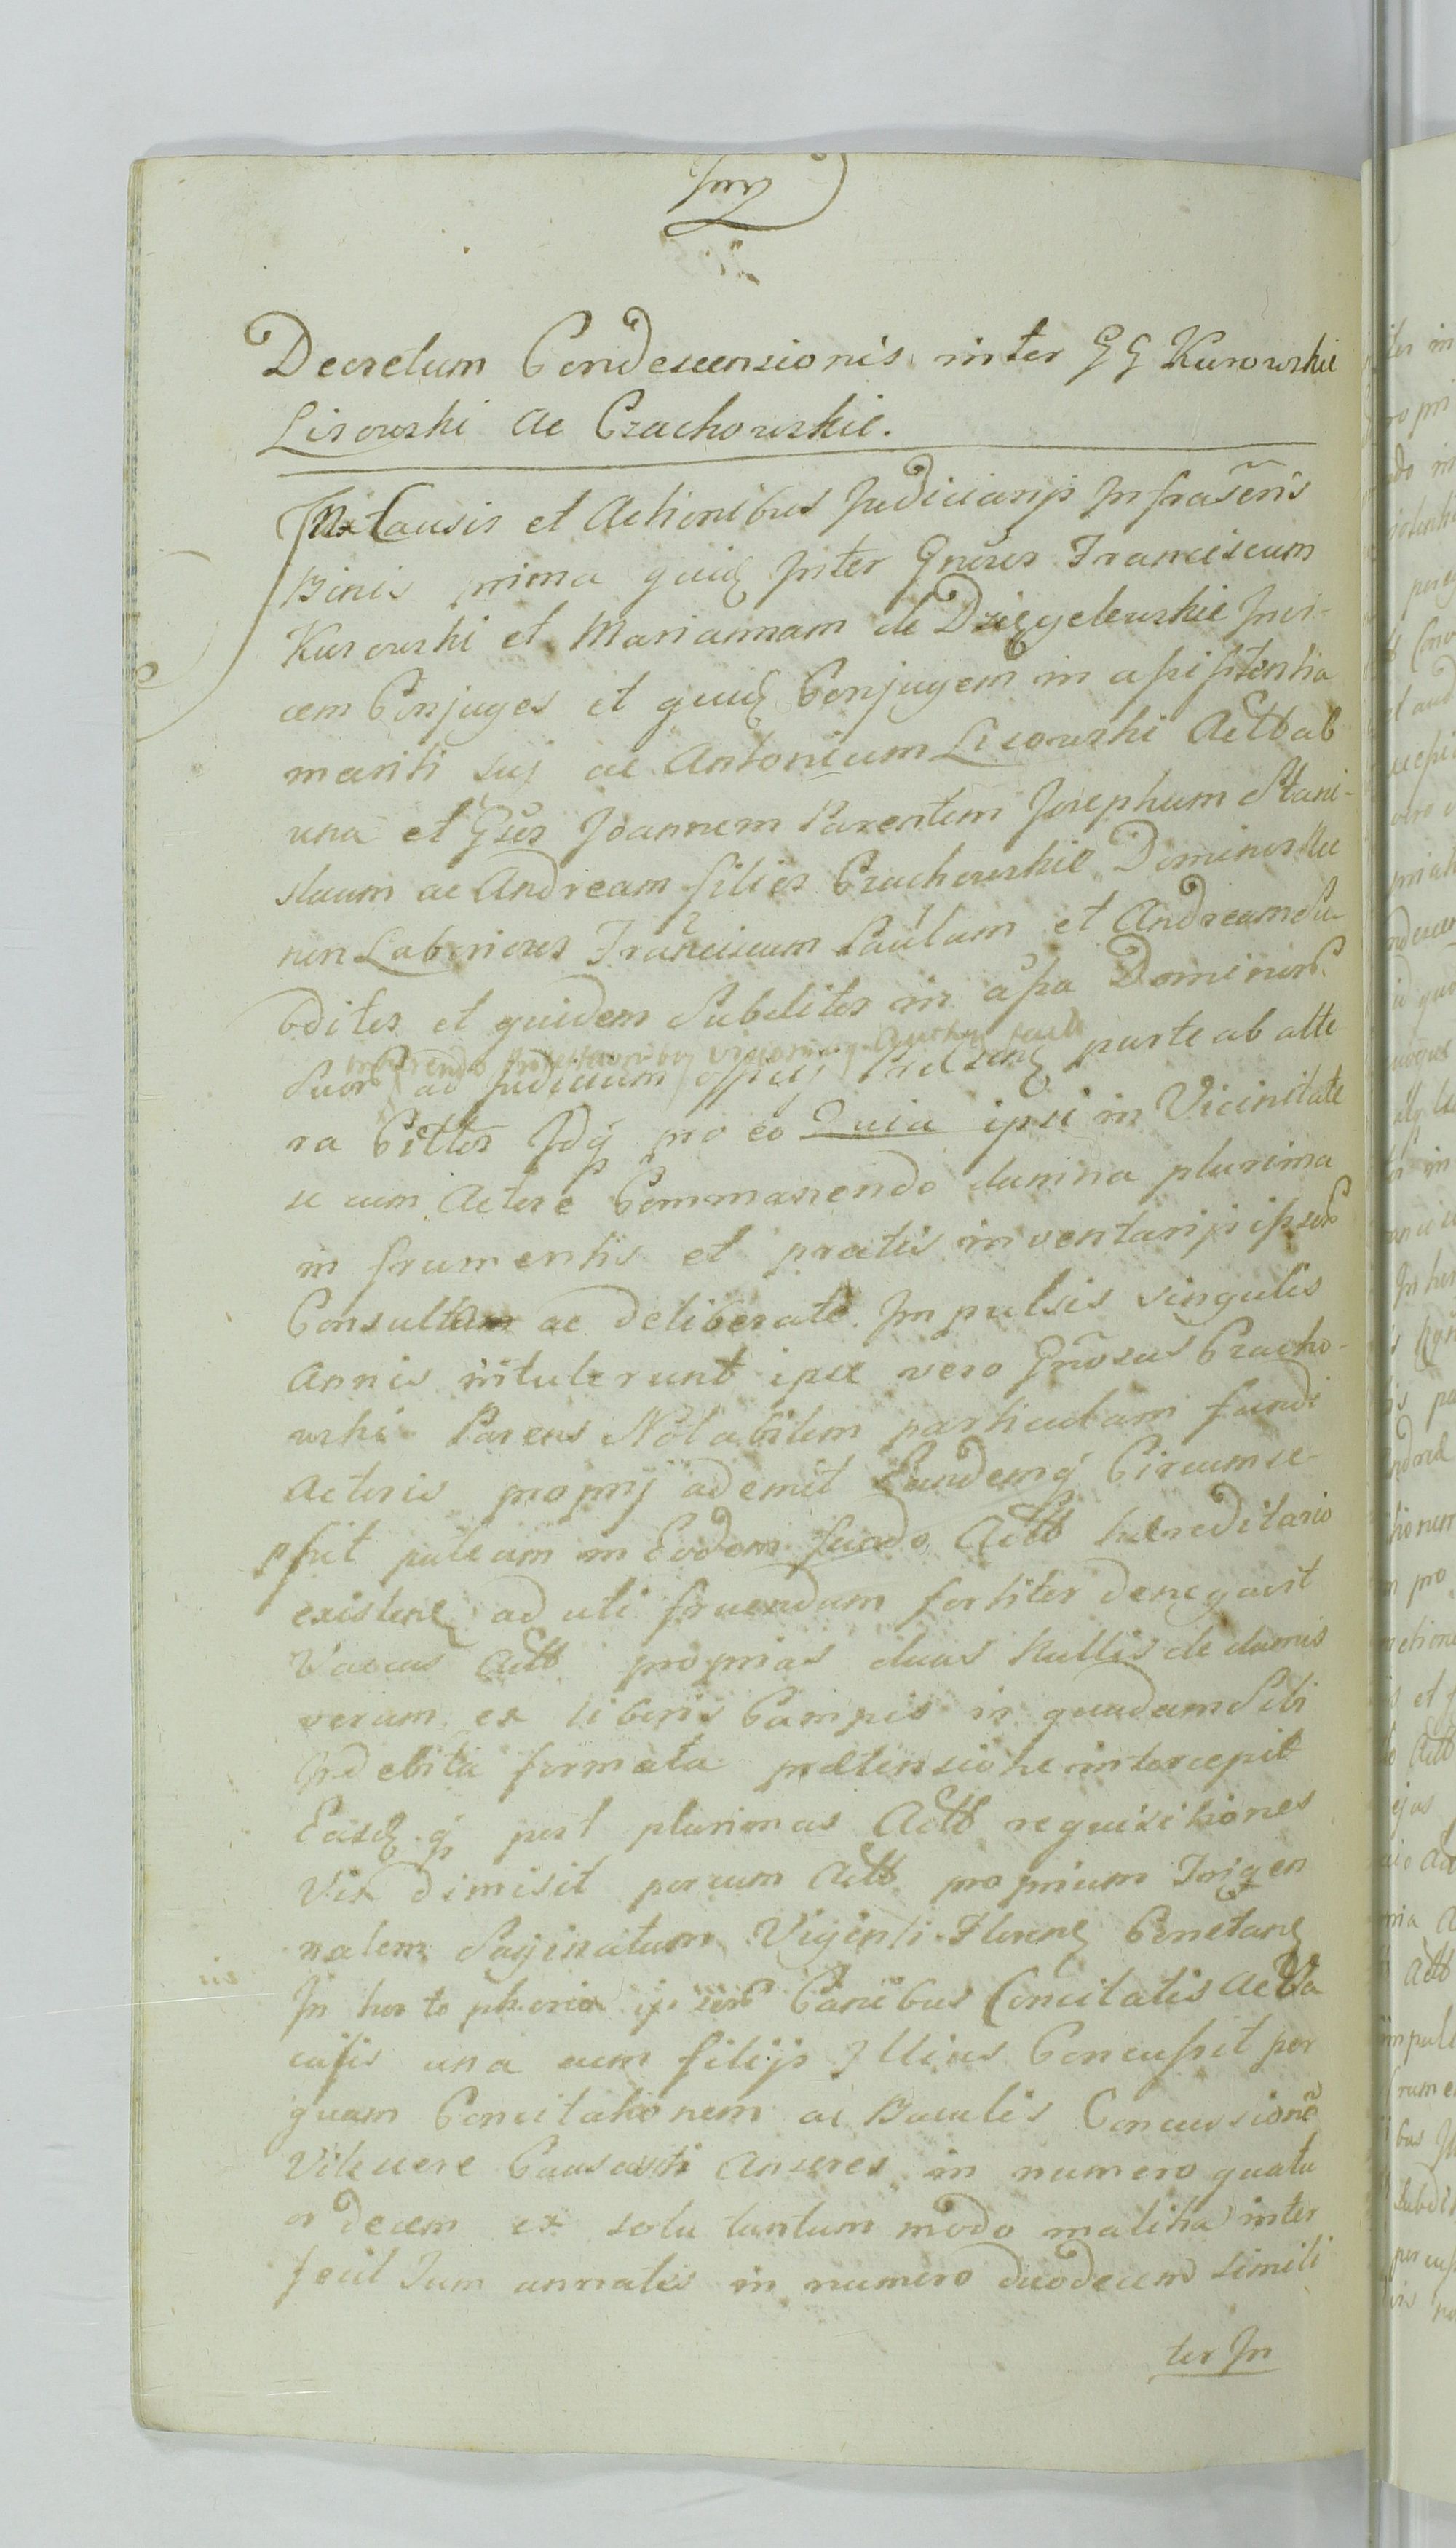 Decretum Condescensionis inter GG Kurowskie
Lisowski ac Czachowskie.
In Causis et Actionibus Judiciarijs Infrascris
Binis prima quid Inter Gnosos Franciscum
Kurowski et Mariannam de Dzięgelewskie Invi-
cem Conjuges et quid Conjugem in assistentia
mariti sui ac Antonium Lisowski Actt ab
una et Gsos Joannem Parentem Josephum Stani-
slaum ac Andream filios Czachowskie Dominos Nec
non Laboriosos Franciscum Paulum et Andream Su-
bditos et quidem Subditos in assa Dominor
Suor ad Judicium officij parte ab alte
ra Cittos Idq pro eo Quia ipsi in Vicinitate
se cum Actore Commanendo damna plurima
in frumentis et pratis inventarijs ipsor
Consulto ac deliberate Impulsis singulis
Annis intulerunt ipse vero Gnosus Czacho-
wski Parens Notabilem particulam fundi
Actoris proprij ademit Eundemq Circumse-
psit puteum in Eodem fundo Actt haereditario
existen ad uti fruendum fortiter denegavit
Vaccas Actt proprias duas Nullis de damnis
verum ex liberis Campis in quadam Sibi
Indebita formata praetensione intercepit
Easdq post plurimas Actt requisitiones
Vix dimisit porcum Actt proprium
nalem Saginatum Viginti Floren Constan
In horto ipsor Canibus Concitatis ac Ba
culis una cum filijs Illius Concussit per
quam Concitationem ac Baculis Concussione
Vilescere Causavit Anseres in numero quatu
or decem ex sola tantum modo malitia inter
fecit Tum annates in numero duodecem simili
ter In